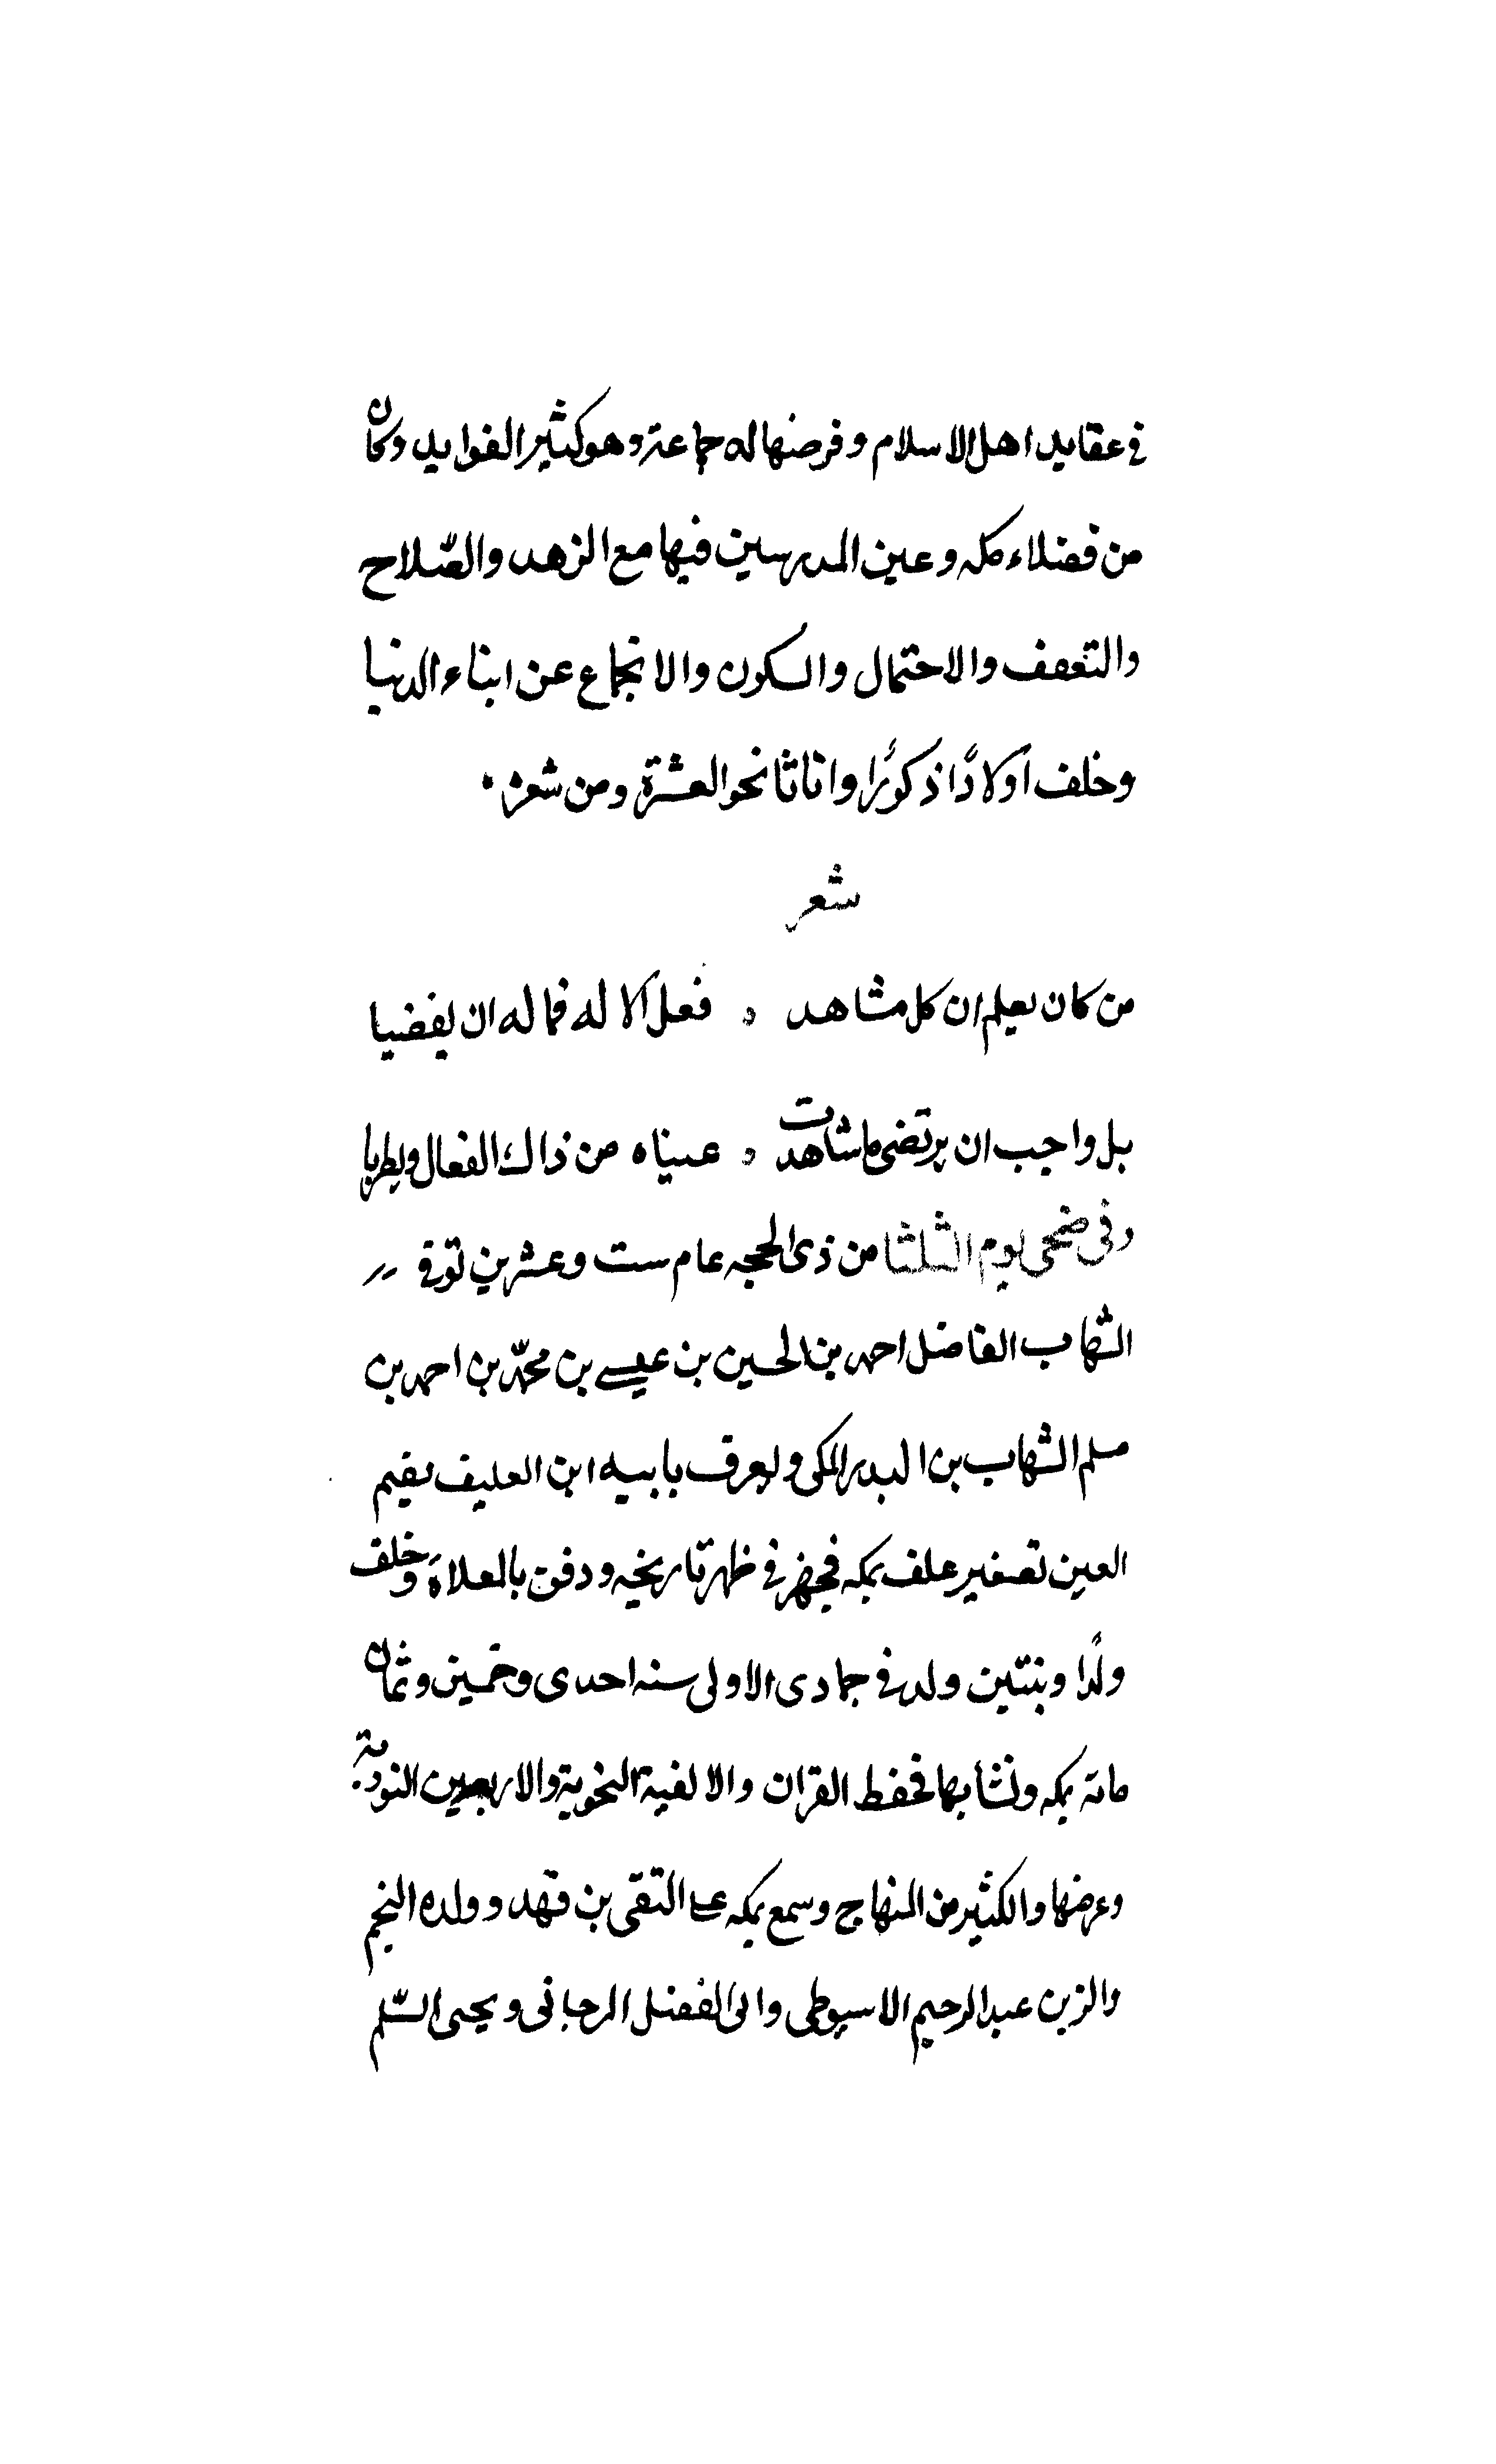 في عقايد اهل الاسلام وفرضها له جماعة وهو كثير الفوايد وكان
من فضلاء مكه وعين المدرسين فيها مع الزهد والصّلاح
والتعفف والاحتمال والسكون والانجماع عن ابناء الدنيا
وخلف اولادًا ذكورًا واناثا نحو العشرة ومن شعره
شعر
من كان يعلم ان كل مشاهد ه فعل الاله فماله ان يغضبا
بل واجب ان يرتضي ما شاهدت ه عيناه من ذاك الفعال ويطربا
وفي ضحى يوم الثلثا من ذي الحجه عام ست وعشرين توفي
الشهاب الفاضل احمد بن الحسين بن عيسى بن محمّد بن احمد بن
مسلم الشهاب بن البدر المكي ويعرف بابيه ابن العليف بضم
العين تصغير علف بمكه فجهز في ظهر تاريخه ودفن بالمعلاة وخلف
ولدًا وبنتين ولد في جمادى الاولى سنه احدى وخمسين وثمان
مائة بمكه ونشأ بها فحفظ القران والالفية النحوية والاربعين النووية
وعرضها والكثير من المنهاج وسمع بمكه على التقي بن فهد وولده النجم
والزين عبد الرحيم الاسيوطي وابى الفضل المرجاني ويحيى السّلم